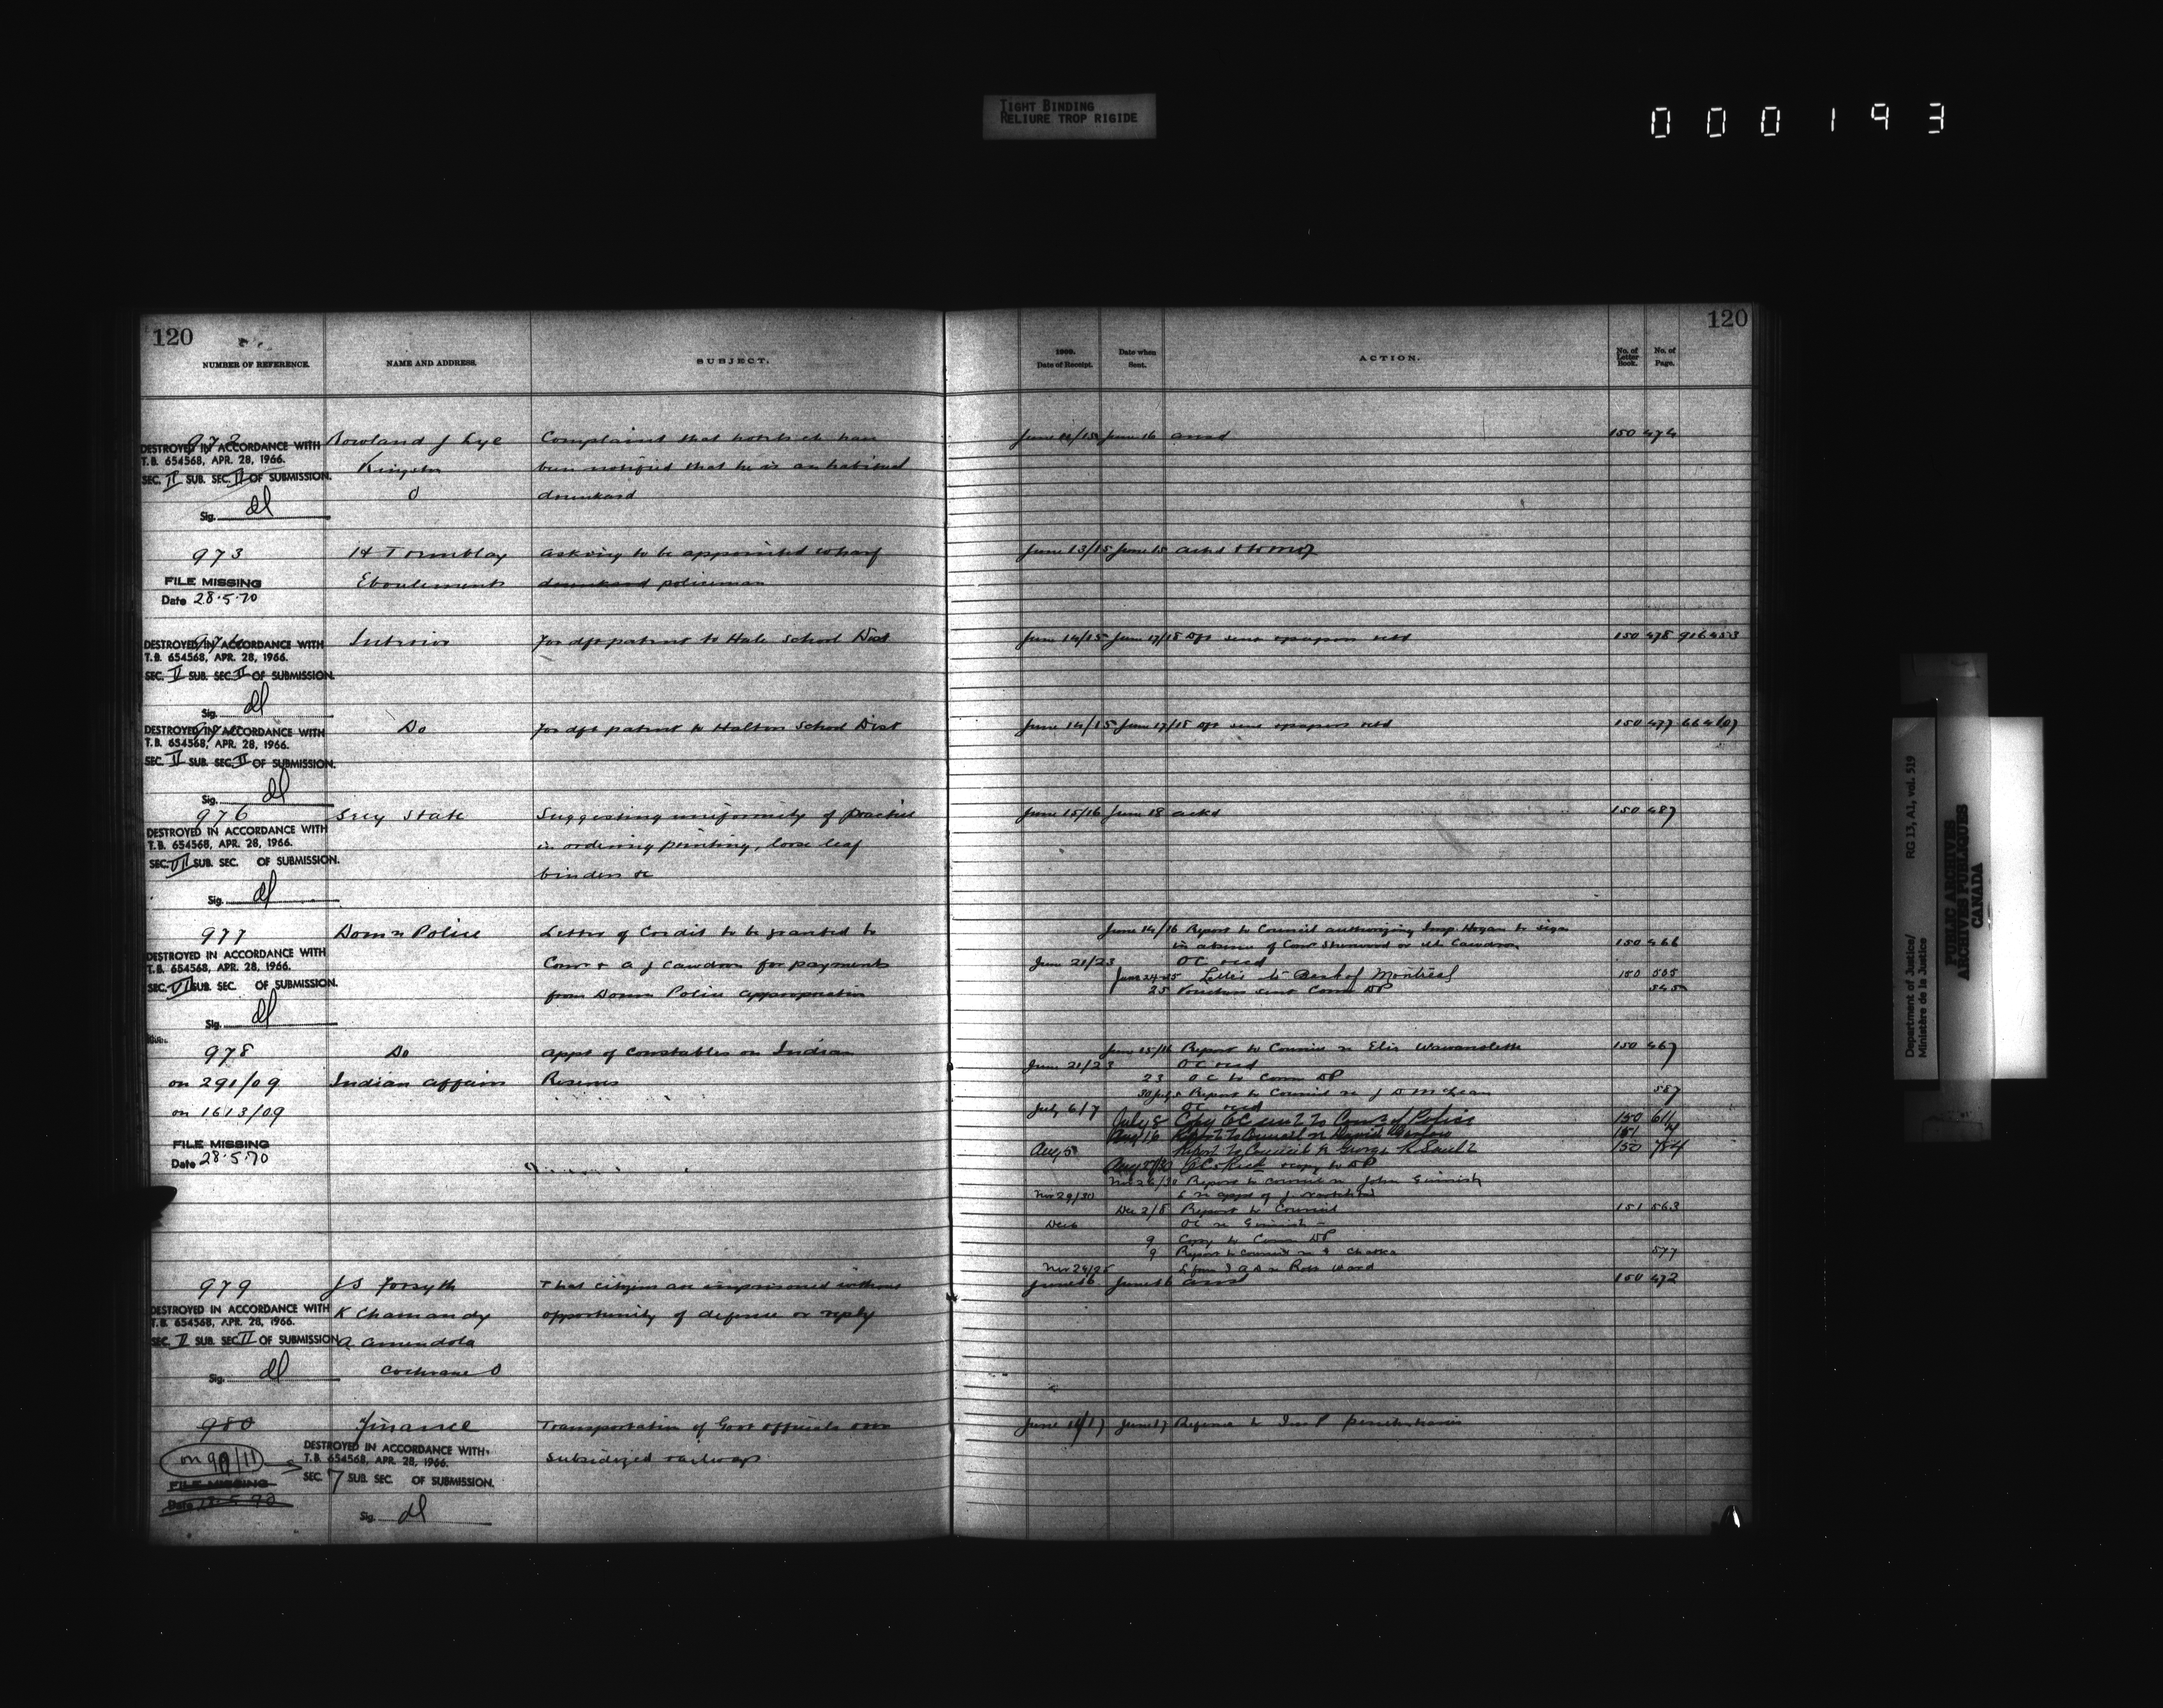 TIGHT BINDING
RELIURE TROP RIGIDE
000193
120
120
NUMBER OF REFERENCE.
NAME AND ADDRESS.
SUBJECT.
1909.
Date of Receipt.
Date when Sent.
ACTION.
No. of Letter Book.
No. of Page.
972 Rowland J Lye Complaint that hotels have June 16 ansd 150 474
DESTROYED IN ACCORDANCE WITH
T.B. 654568, APR. 28, 1966.
Kingston been notified that he is an habitual
SEC. II SUB. SEC. II OF SUBMISSION.
O drunkard
Sig. dl
973 H Tremblay asking to be appointed wharf June 13/15 June 15 ackd
Eboulements drunkard policeman
FILE MISSING
Date 28.5.70
Interior For dft patent to Hale School Dist June 14/15 June 17/18 Dft sent & papers retd 150 478 916453
DESTROYED IN ACCORDANCE WITH
T.B. 654568, APR. 28, 1966.
SEC. II SUB. SEC. II OF SUBMISSION.
Sig. dl
Do For dft patent to Halton School Dist June 14/15 June 17/18 Dft sent & papers retd 150 477
DESTROYED IN ACCORDANCE WITH
T.B. 654568, APR. 28, 1966.
SEC. II SUB. SEC. II OF SUBMISSION.
Sig. dl
976 Secy State Suggesting uniformity of practice June 15/16 June 18 ackd 150 487
DESTROYED IN ACCORDANCE WITH
T.B. 654568, APR. 28, 1966.
in ordering printing, loose leaf
SEC. VII SUB. SEC. OF SUBMISSION.
binders &c
Sig. dl
977 Domn Police Letter of Credit to be granted to June 14/16 Report to Council authorizing Insp. Hogan to sign
in absence of Comr Sherwood or Mr Cawdron 150 466
DESTROYED IN ACCORDANCE WITH
T.B. 654568, APR. 28, 1966.
Comr & A J Cawdron for payments June 21/23 OC recd
SEC. VI SUB. SEC. OF SUBMISSION.
Letter to Bank of Montreal 150 505
from Domn Police appropriation 25 Vouchers sent Comr DP 545
Sig. dl
978 Do Appt of Constables on Indian June 15/16 Report to Council re Elis Wawanoloth 150 467
June 21/23 OC recd
on 291/09 Indian Affairs Reserves 23 OC to Comr DP
Report to Council re J D McLean 587
on 1613/09 July 6/7 OC recd
July 8 Copy OC sent to Comr of Police 150 611
Aug 16 Report to Council re 151
FILE MISSING
Date 28.5.70
Aug 5 Report to Council re George R 150 754
Aug 27/30 copy to DP
Nov 26/30 Report to Council re John
Nov 29/30 L re appt of J
Dec 2/8 Report to Council 151 563
Dec 6 OC re
9 Copy to Comr DP
9 Report to Council re 577
Nov 24/25 L from re Ross Ward
979 J S Forsyth That citizens are imprisoned without June 16 June 16 ansd 150 472
DESTROYED IN ACCORDANCE WITH
T.B. 654568, APR. 28, 1966.
K Chamandy opportunity of defence or reply
SEC. II SUB. SEC. II OF SUBMISSION
A Amendola
Cochrane O
Sig. dl
980 Finance Transportation of Govt officials over June 16/17 June 17 Refence to Ins P penitentiaries
on 99/11 subsidized railways
DESTROYED IN ACCORDANCE WITH
T.B. 654568, APR. 28, 1966.
SEC. 7 SUB. SEC. OF SUBMISSION.
FILE MISSING
Date
Sig. dl
Department of Justice/
Ministère de la Justice
RG 13, A1, vol. 519
PUBLIC ARCHIVES
ARCHIVES PUBLIQUES
CANADA